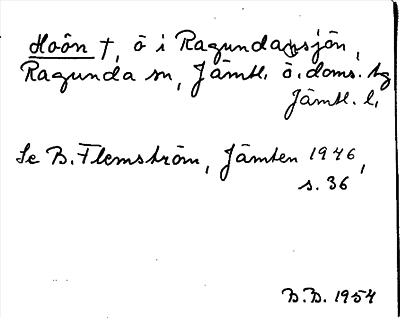 Hoôn †, ö i Ragundasjön,
Ragunda sn, Jämtl. ö. doms. hg
Jämtl. l.
Se B. Flemström, Jämten 1946,
s. 36
B.B. 1954